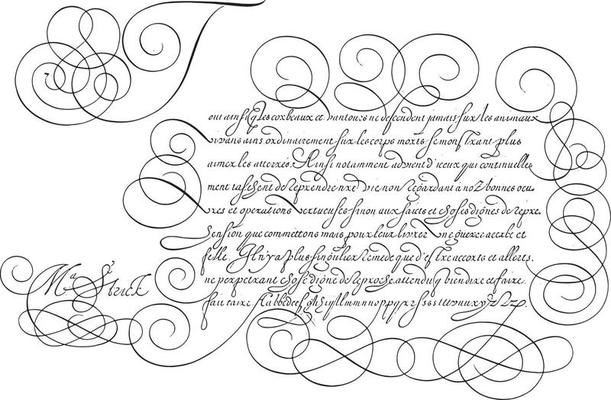 T
out ainsi q̃ les corbeaux et vautours ne descendent jamais sur les animaux
vivans ains ordinairement sur les corps morts se monstrant plus
aimer les atterrés. Ainsi notammant advient d'iceux qui continuelle
ment taschent de reprendre nr̃e vie non regardant a noz bonnes oeu
vres et operations vertueuses sinon aux fautes et choses dignes de repre
sension que commettons mais pour leur livrer guerre accorte et
Il n'y a plus singulier remede que d'estre accorts et allerts.
ne perpetrant chose digne de reproche attendu q̃ bien dire et faire
fait taire
Ma Strick